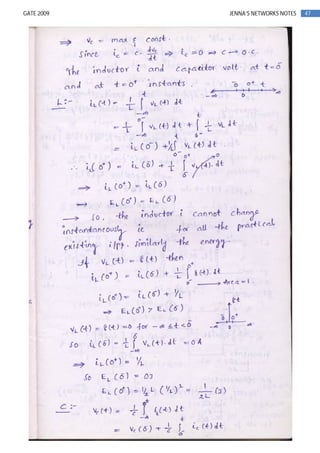 GATE 2009 JENNA'S NETWORKS NOTES 47
⇒ Vc = max & const.
Since ic = C· dVc/dt ⇒ ic = 0 ⇒ C → O.C.
The inductor i and capacitor volt. at t = 0⁻
and at t = 0⁺ instants.
-∞ 0⁻ 0⁺ t
L:- iL(t) = 1/L ∫_{-∞}^{t} vL(t) dt
= 1/L ∫_{-∞}^{0⁻} vL(t) dt + 1/L ∫_{0⁻}^{t} vL dt
= iL(0⁻) + 1/L ∫_{0⁻}^{t} vL(t) dt
∴ iL(0⁺) = iL(0⁻) + 1/L ∫_{0⁻}^{0⁺} vL(t). dt
⇒ iL(0⁺) = iL(0⁻)
⇒ EL(0⁺) = EL(0⁻)
⇒ So, the inductor i cannot change
instantaneously, ie for all the practical
existing i/ps. Similarly the energy.
If vL(t) = δ(t) then
iL(0⁺) = iL(0⁻) + 1/L ∫_{0⁻}^{0⁺} δ(t) dt
→ area = 1.
iL(0⁺) = iL(0⁻) + 1/L
⇒ EL(0⁺) > EL(0⁻)
vL(t) = δ(t) = 0 for -∞ ≤ t < 0
-∞ 0⁻ 0⁺ ∞
So iL(0⁻) = 1/L ∫_{-∞}^{0⁻} vL(t). dt = 0A
⇒ iL(0⁺) = 1/L
So EL(0⁻) = 0J
EL(0⁺) = 1/2 L (1/L)² = 1/2L (J)
C:- Vc(t) = 1/C ∫_{-∞}^{t} ic(t) dt
= Vc(0⁻) + 1/C ∫_{0⁻}^{t} ic(t) dt